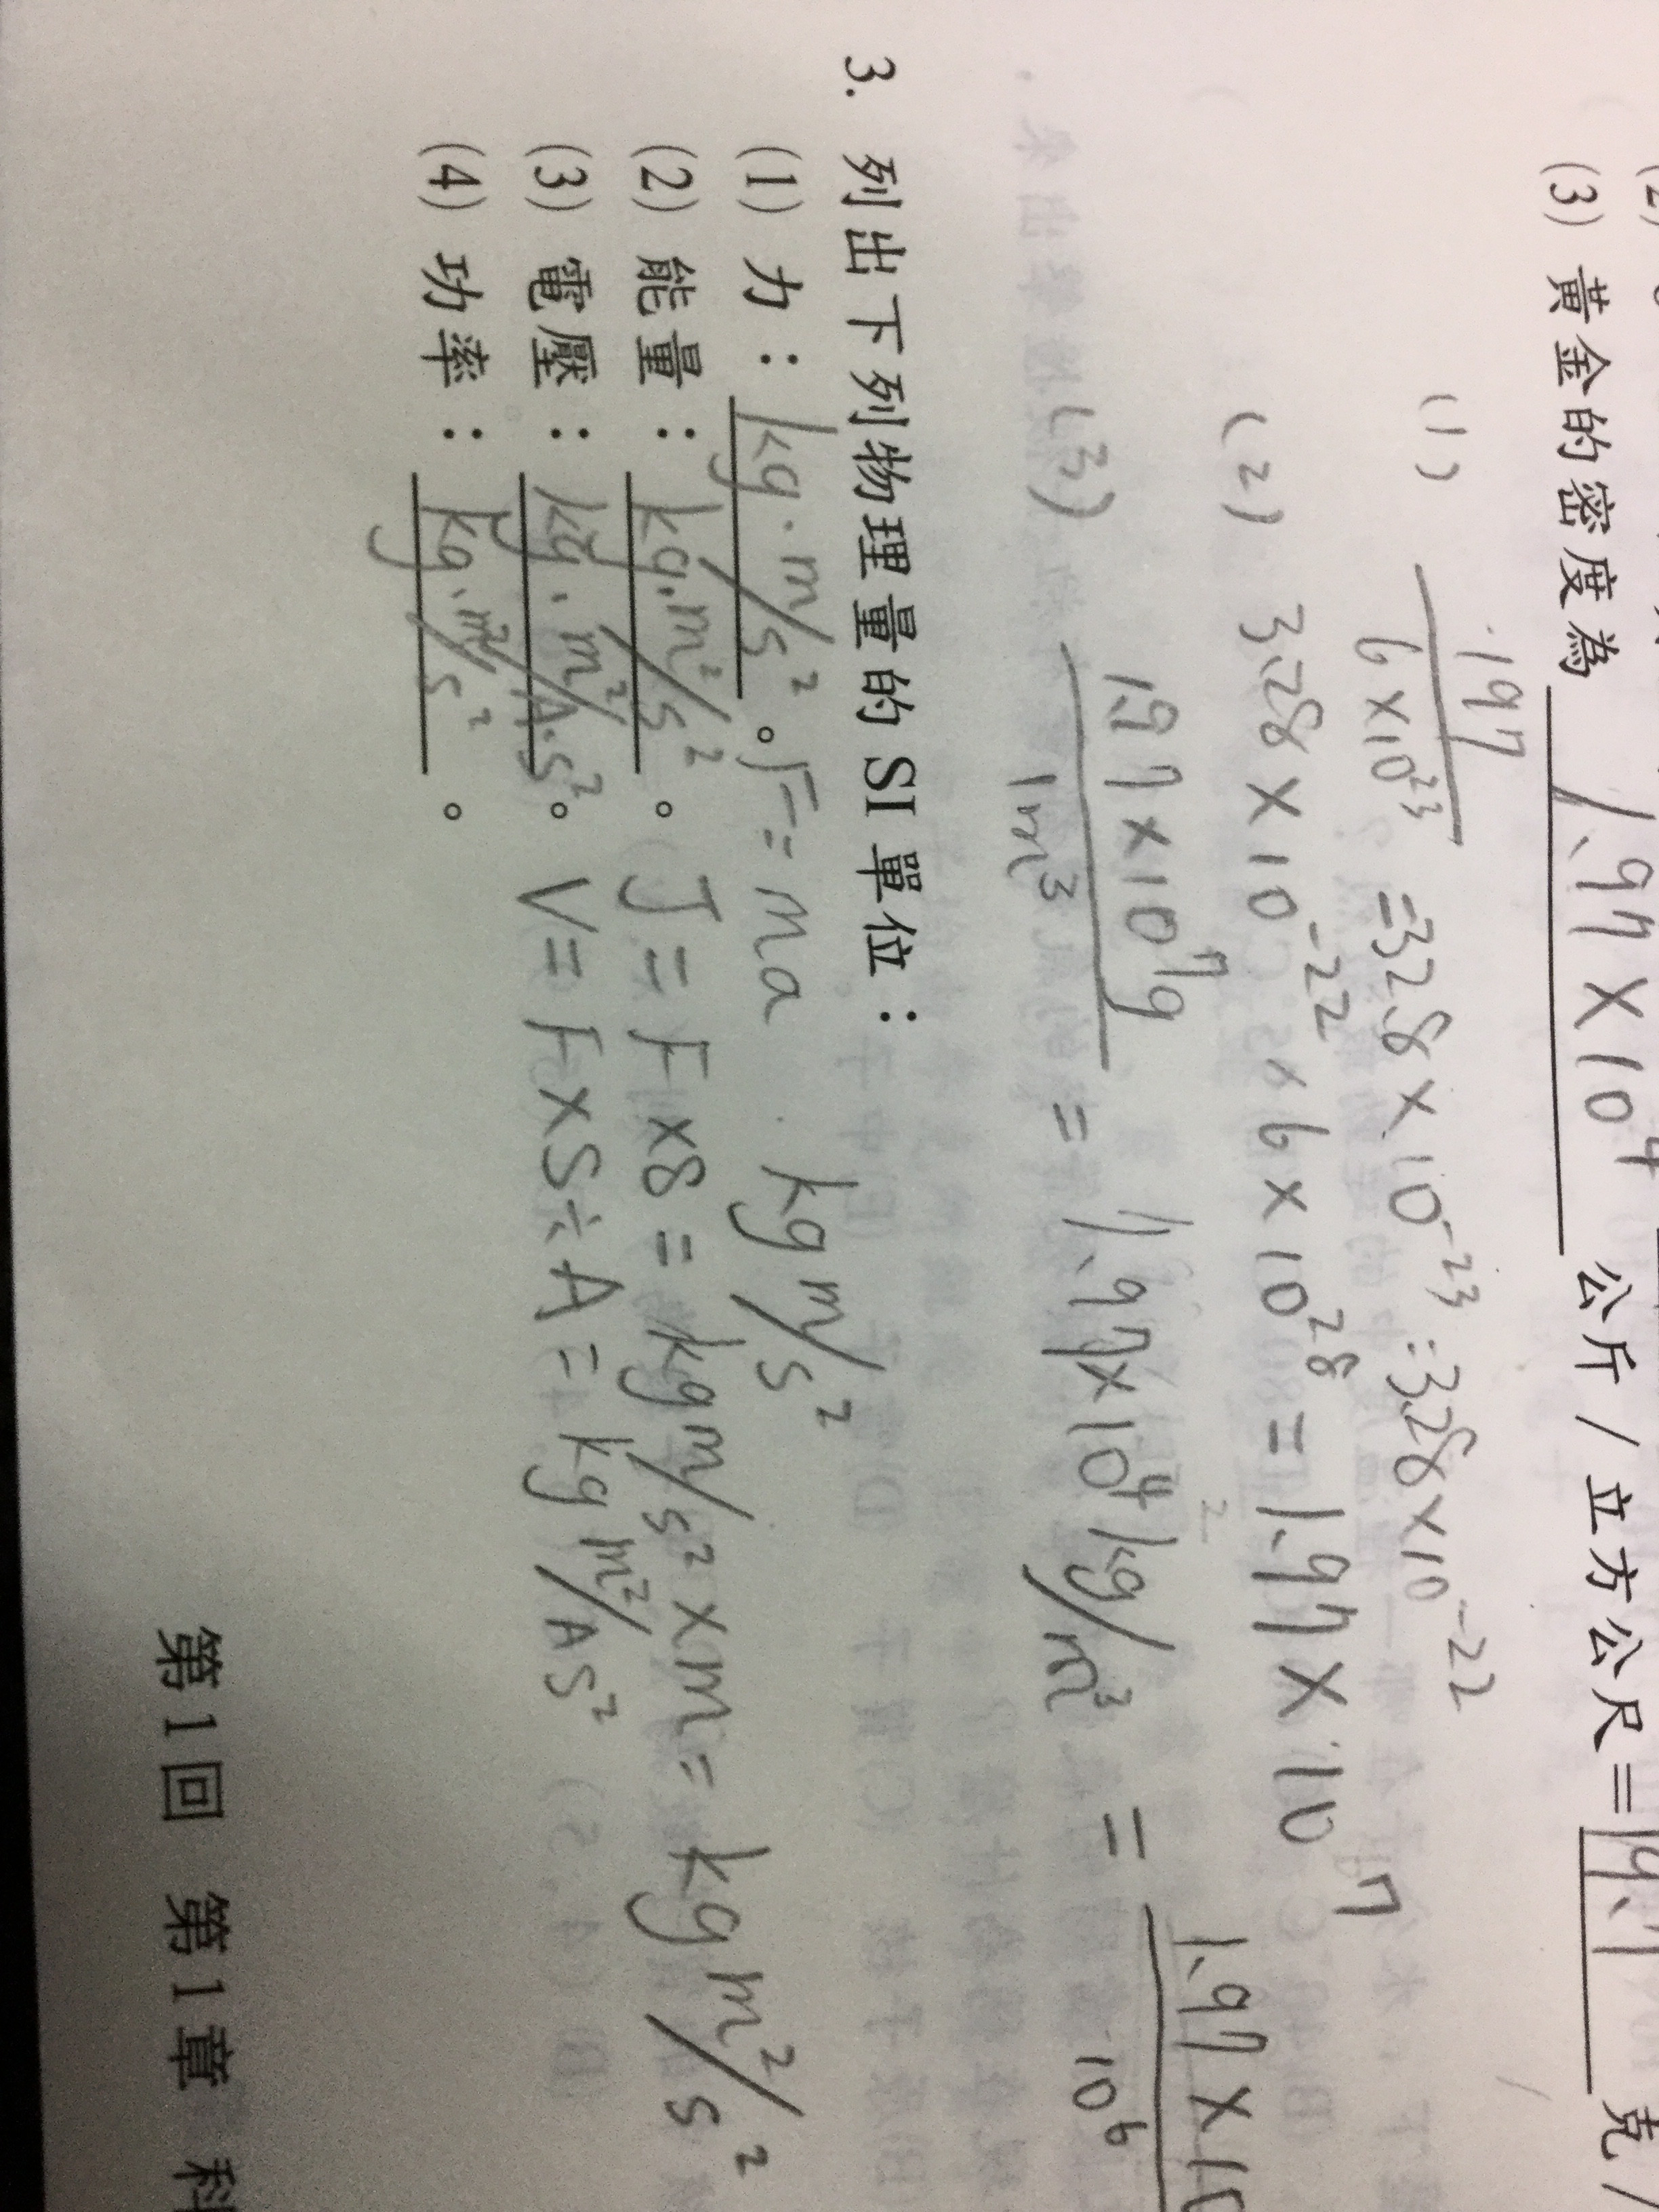 (3) 黃金的密度為 1.97×10⁴ 公斤/立方公尺=19.7 克/
(1) .197 / 6×10²³ =328×10⁻²³ =3.28×10⁻²²
(2) 3.28×10⁻²² ×6×10²⁸ = 1.97×10⁷
(3) 1.97×10⁷g / 1m³ = 1.97×10⁴ kg/m³ = 1.97×10 / 10⁶
3. 列出下列物理量的 SI 單位:
(1) 力: kg·m/s² 。F=ma kgm/s²
(2) 能量: kg·m²/s² 。 J=F×S=kgm/s²×m=kgm²/s²
(3) 電壓: kg·m²/A·s² 。 V=F×S÷A=kgm²/AS²
(4) 功率: kg·m²/s² 。
第1回 第1章 科